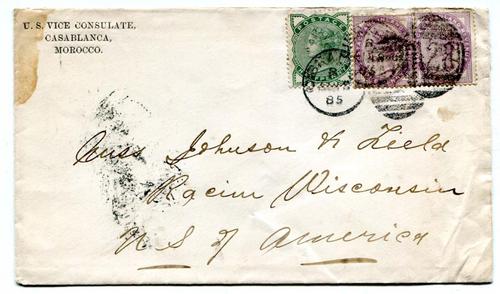 U. S. VICE CONSULATE,
CASABLANCA,
MOROCCO.
POSTAGE
85
Johnson & Field
Racine Wisconsin
U S of America